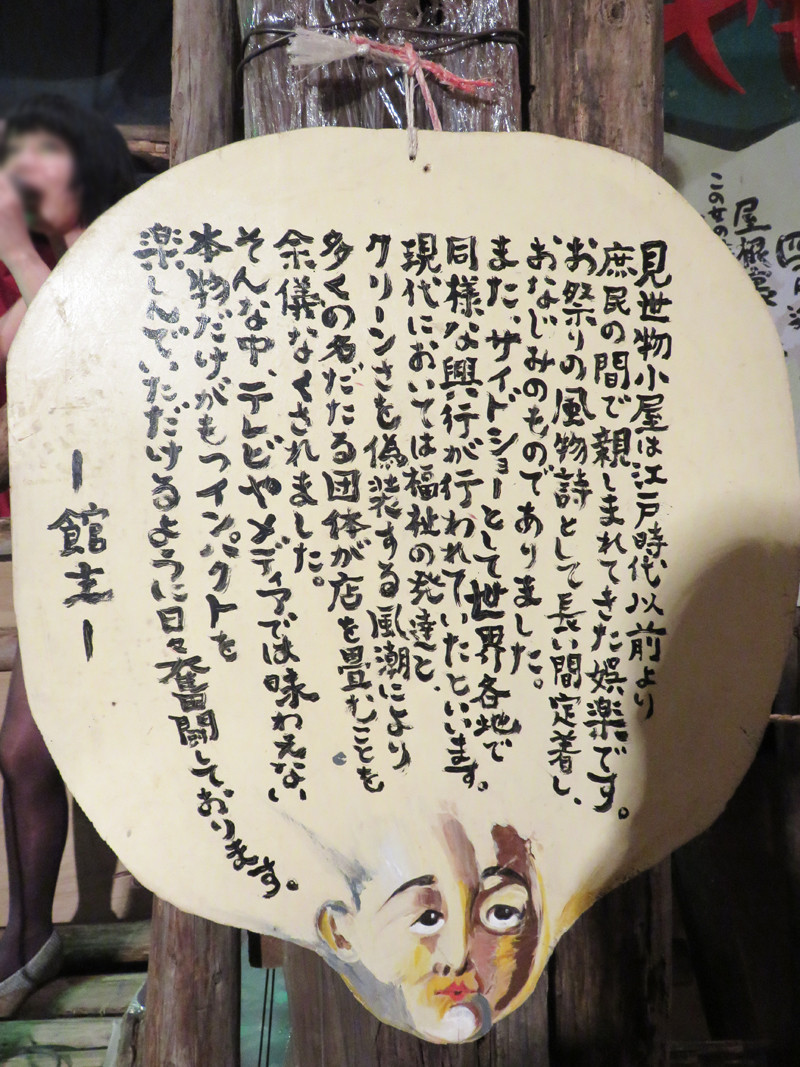 見世物小屋は江戸時代以前より
庶民の間で親しまれてきた娯楽です。
お祭りの風物詩として長い間定着し、
おなじみのものでありました。
また、サイドショーとして世界各地で
同様な興行が行われていたといいます。
現代においては福祉の発達と、
クリーンさを偽装する風潮により
多くの名だたる団体が店を畳むことも
余儀なくされました。
そんな中、テレビやメディアでは味わえない
本物だけがもつインパクトを
楽しんでいただけるように日々奮闘しております。
ー館主ー
屋根裏
この女の